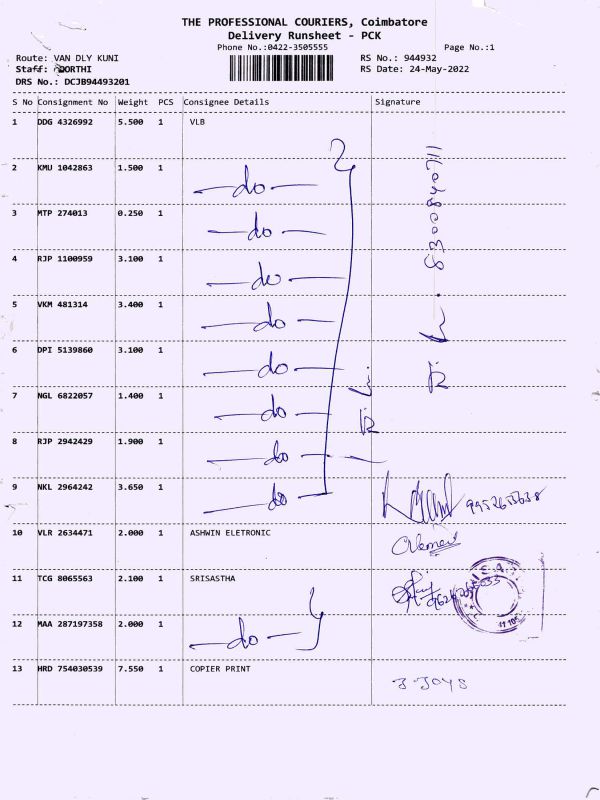 THE PROFESSIONAL COURIERS, Coimbatore
Delivery Runsheet - PCK
Phone No.:0422-3505555
Page No.:1
Route: VAN DLY KUNI
RS No.: 944932
Staff: OORTHI
RS Date: 24-May-2022
DRS No.: DCJB94493201
S No Consignment No Weight PCS Consignee Details Signature
1 DDG 4326992 5.500 1 VLB
2 KMU 1042863 1.500 1 —do—
3 MTP 274013 0.250 1 —do—
4 RJP 1100959 3.100 1 —do—
5 VKM 481314 3.400 1 —do—
6 DPI 5139860 3.100 1 —do—
7 NGL 6822057 1.400 1 —do—
8 RJP 2942429 1.900 1 —do—
9 NKL 2964242 3.650 1 —do—
10 VLR 2634471 2.000 1 ASHWIN ELETRONIC
11 TCG 8065563 2.100 1 SRISASTHA
12 MAA 287197358 2.000 1 —do—
13 HRD 754030539 7.550 1 COPIER PRINT